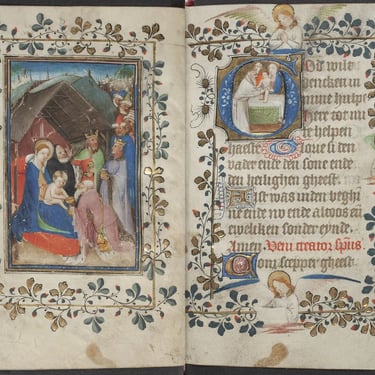 God wilt
dencken in
mine hulpe
heer tot mi
te helpen
haeste Glorie si den
vader ende den sone ende
den heilighen gheest
was inden beghi
ne ende nu ende altoos en
eweliken sonder eynde
Amen Veni creator sps
Com scepper gheest